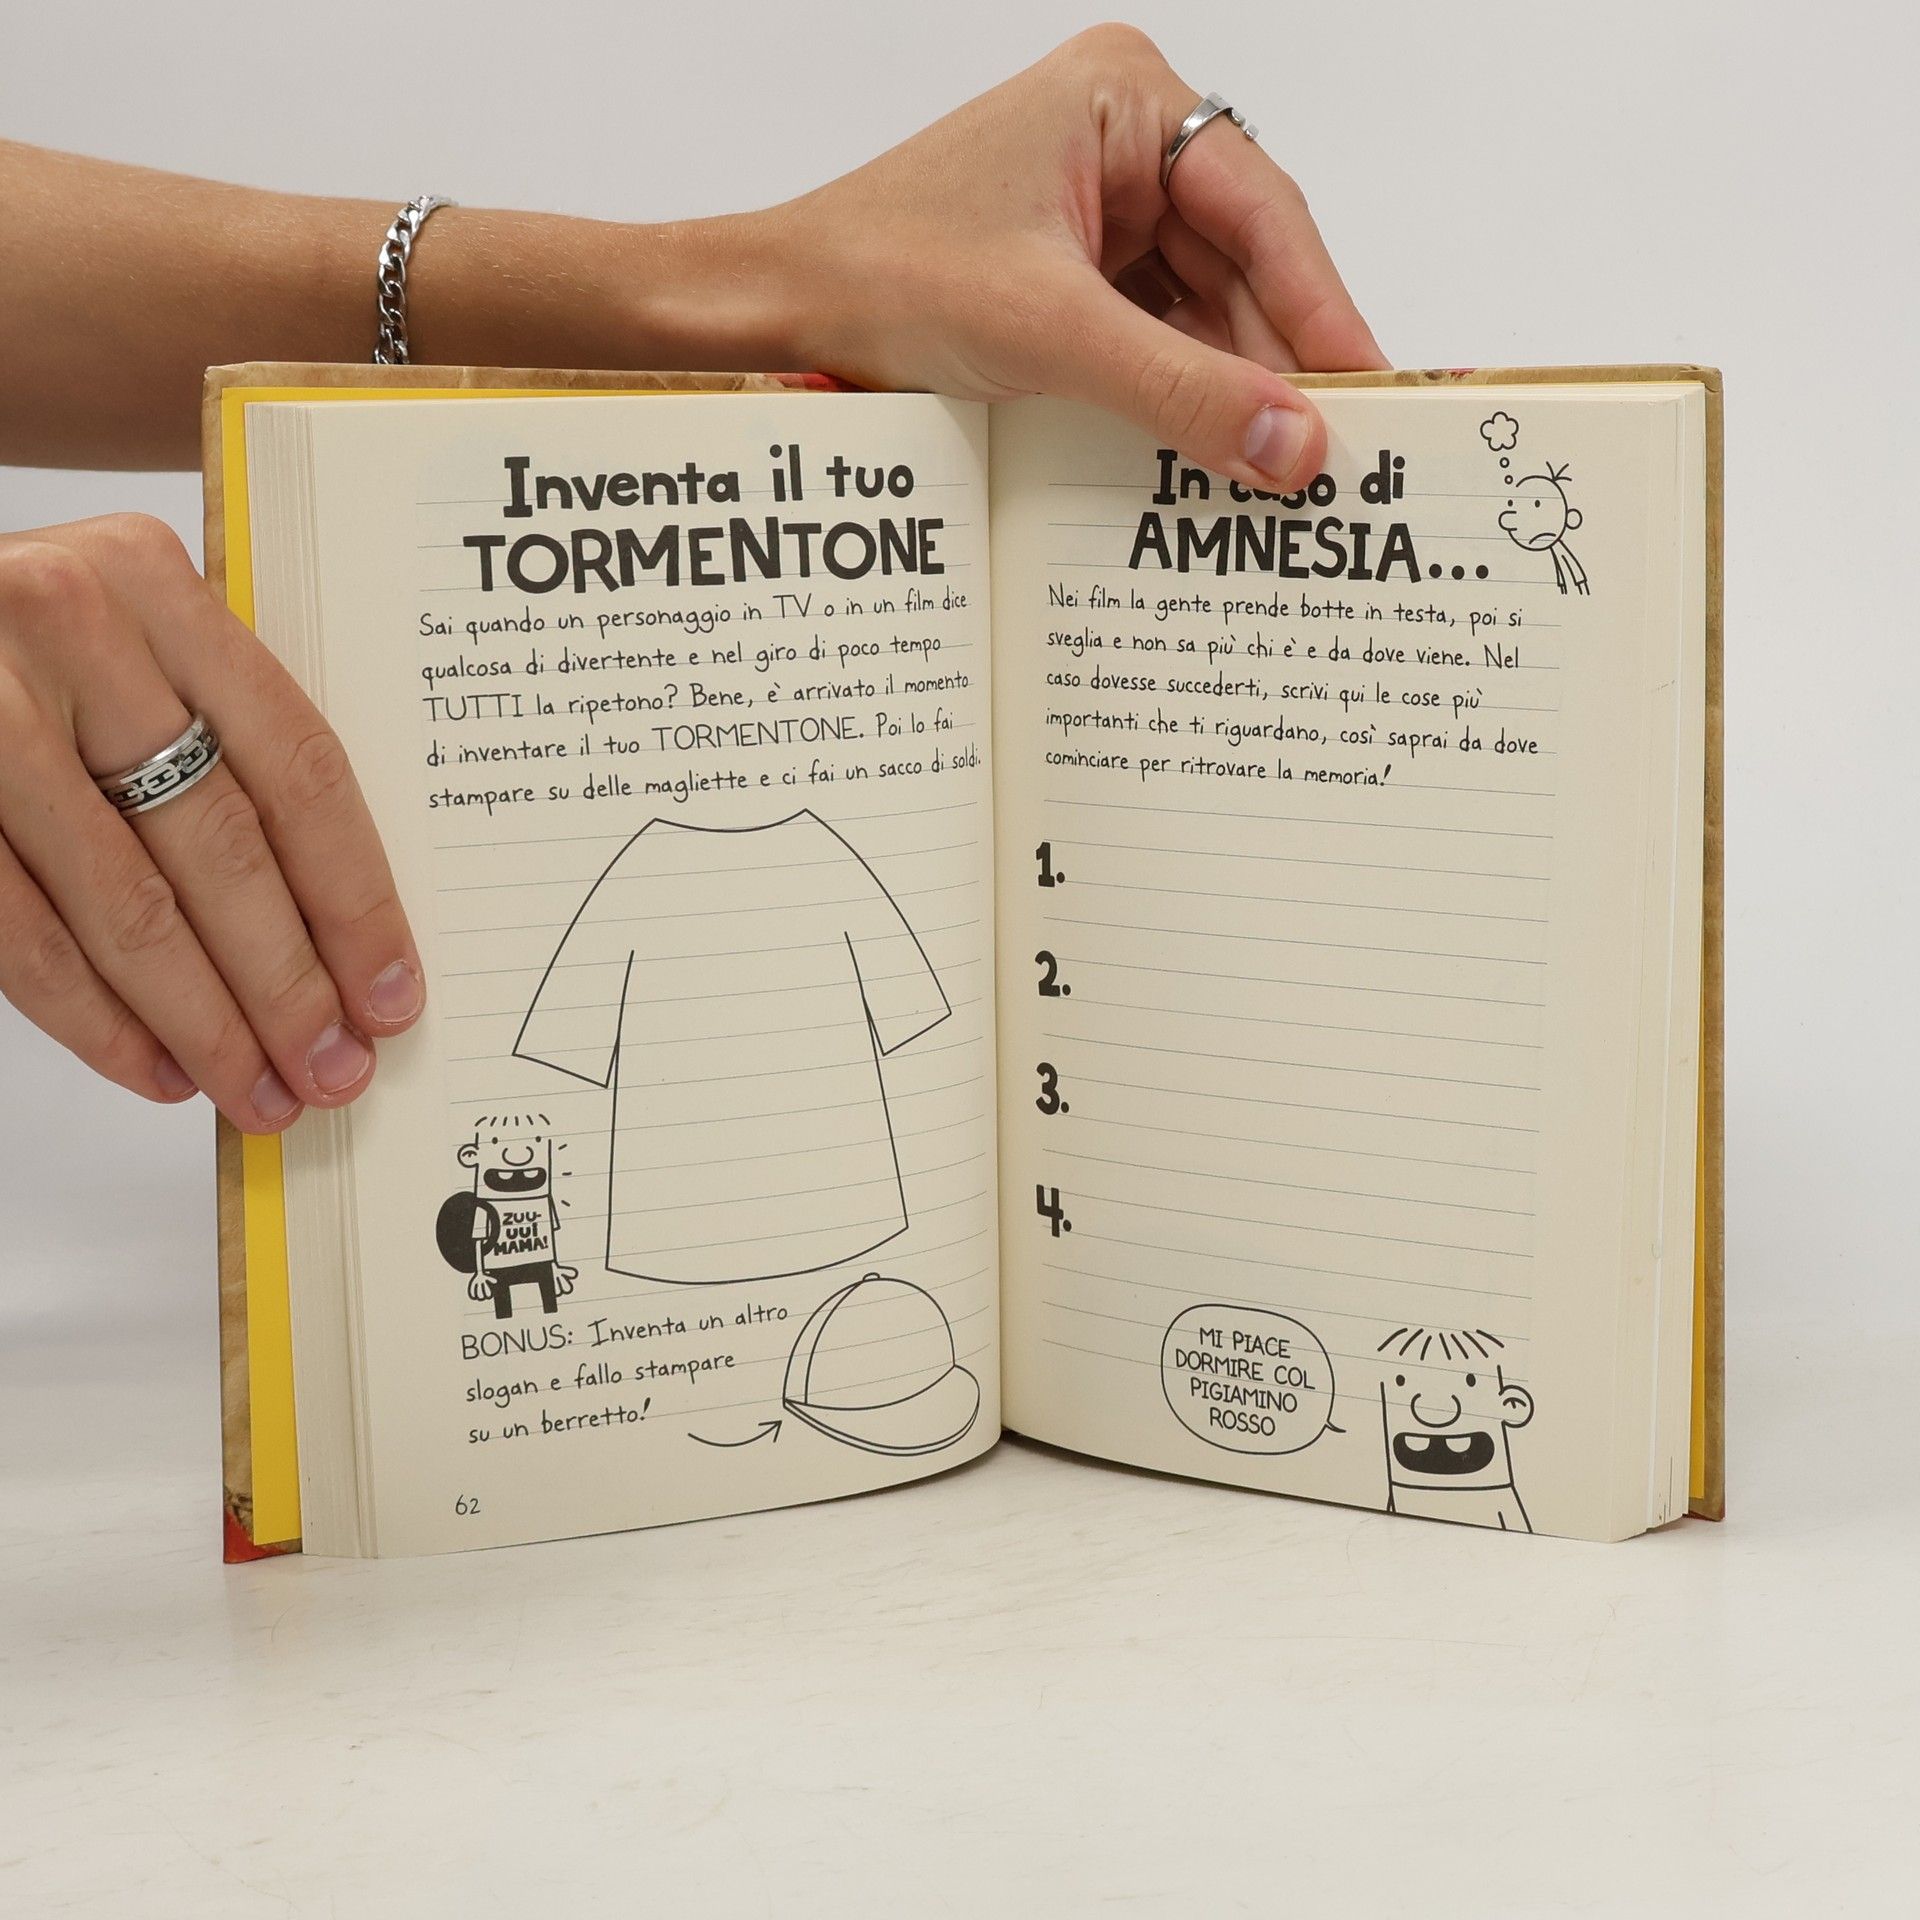 Inventa il tuo
TORMENTONE
Sai quando un personaggio in TV o in un film dice
qualcosa di divertente e nel giro di poco tempo
TUTTI la ripetono? Bene, è arrivato il momento
di inventare il tuo TORMENTONE. Poi lo fai
stampare su delle magliette e ci fai un sacco di soldi.
ZUU-
UUI
MAMA!
BONUS: Inventa un altro
slogan e fallo stampare
su un berretto!
62
In caso di
AMNESIA...
Nei film la gente prende botte in testa, poi si
sveglia e non sa più chi è e da dove viene. Nel
caso dovesse succederti, scrivi qui le cose più
importanti che ti riguardano, così saprai da dove
cominciare per ritrovare la memoria!
1.
2.
3.
4.
MI PIACE
DORMIRE COL
PIGIAMINO
ROSSO